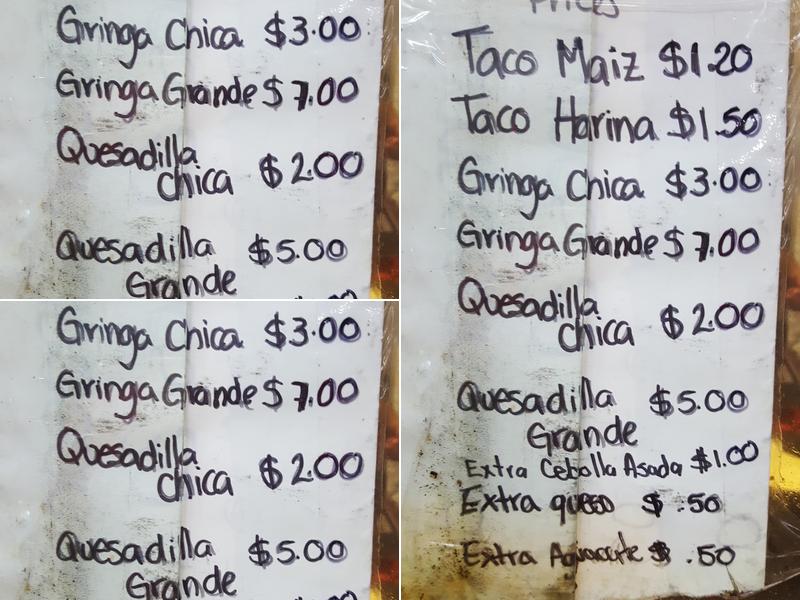 Gringa Chica $3.00
Gringa Grande $7.00
Quesadilla
chica $2.00
Quesadilla $5.00
Grande
Gringa Chica $3.00
Gringa Grande $7.00
Quesadilla
chica $2.00
Quesadilla $5.00
Grande
Prices
Taco Maiz $1.20
Taco Harina $1.50
Gringa Chica $3.00
Gringa Grande $7.00
Quesadilla
chica $2.00
Quesadilla $5.00
Grande
Extra Cebolla Asada $1.00
Extra queso $ .50
Extra Aguacate $ .50